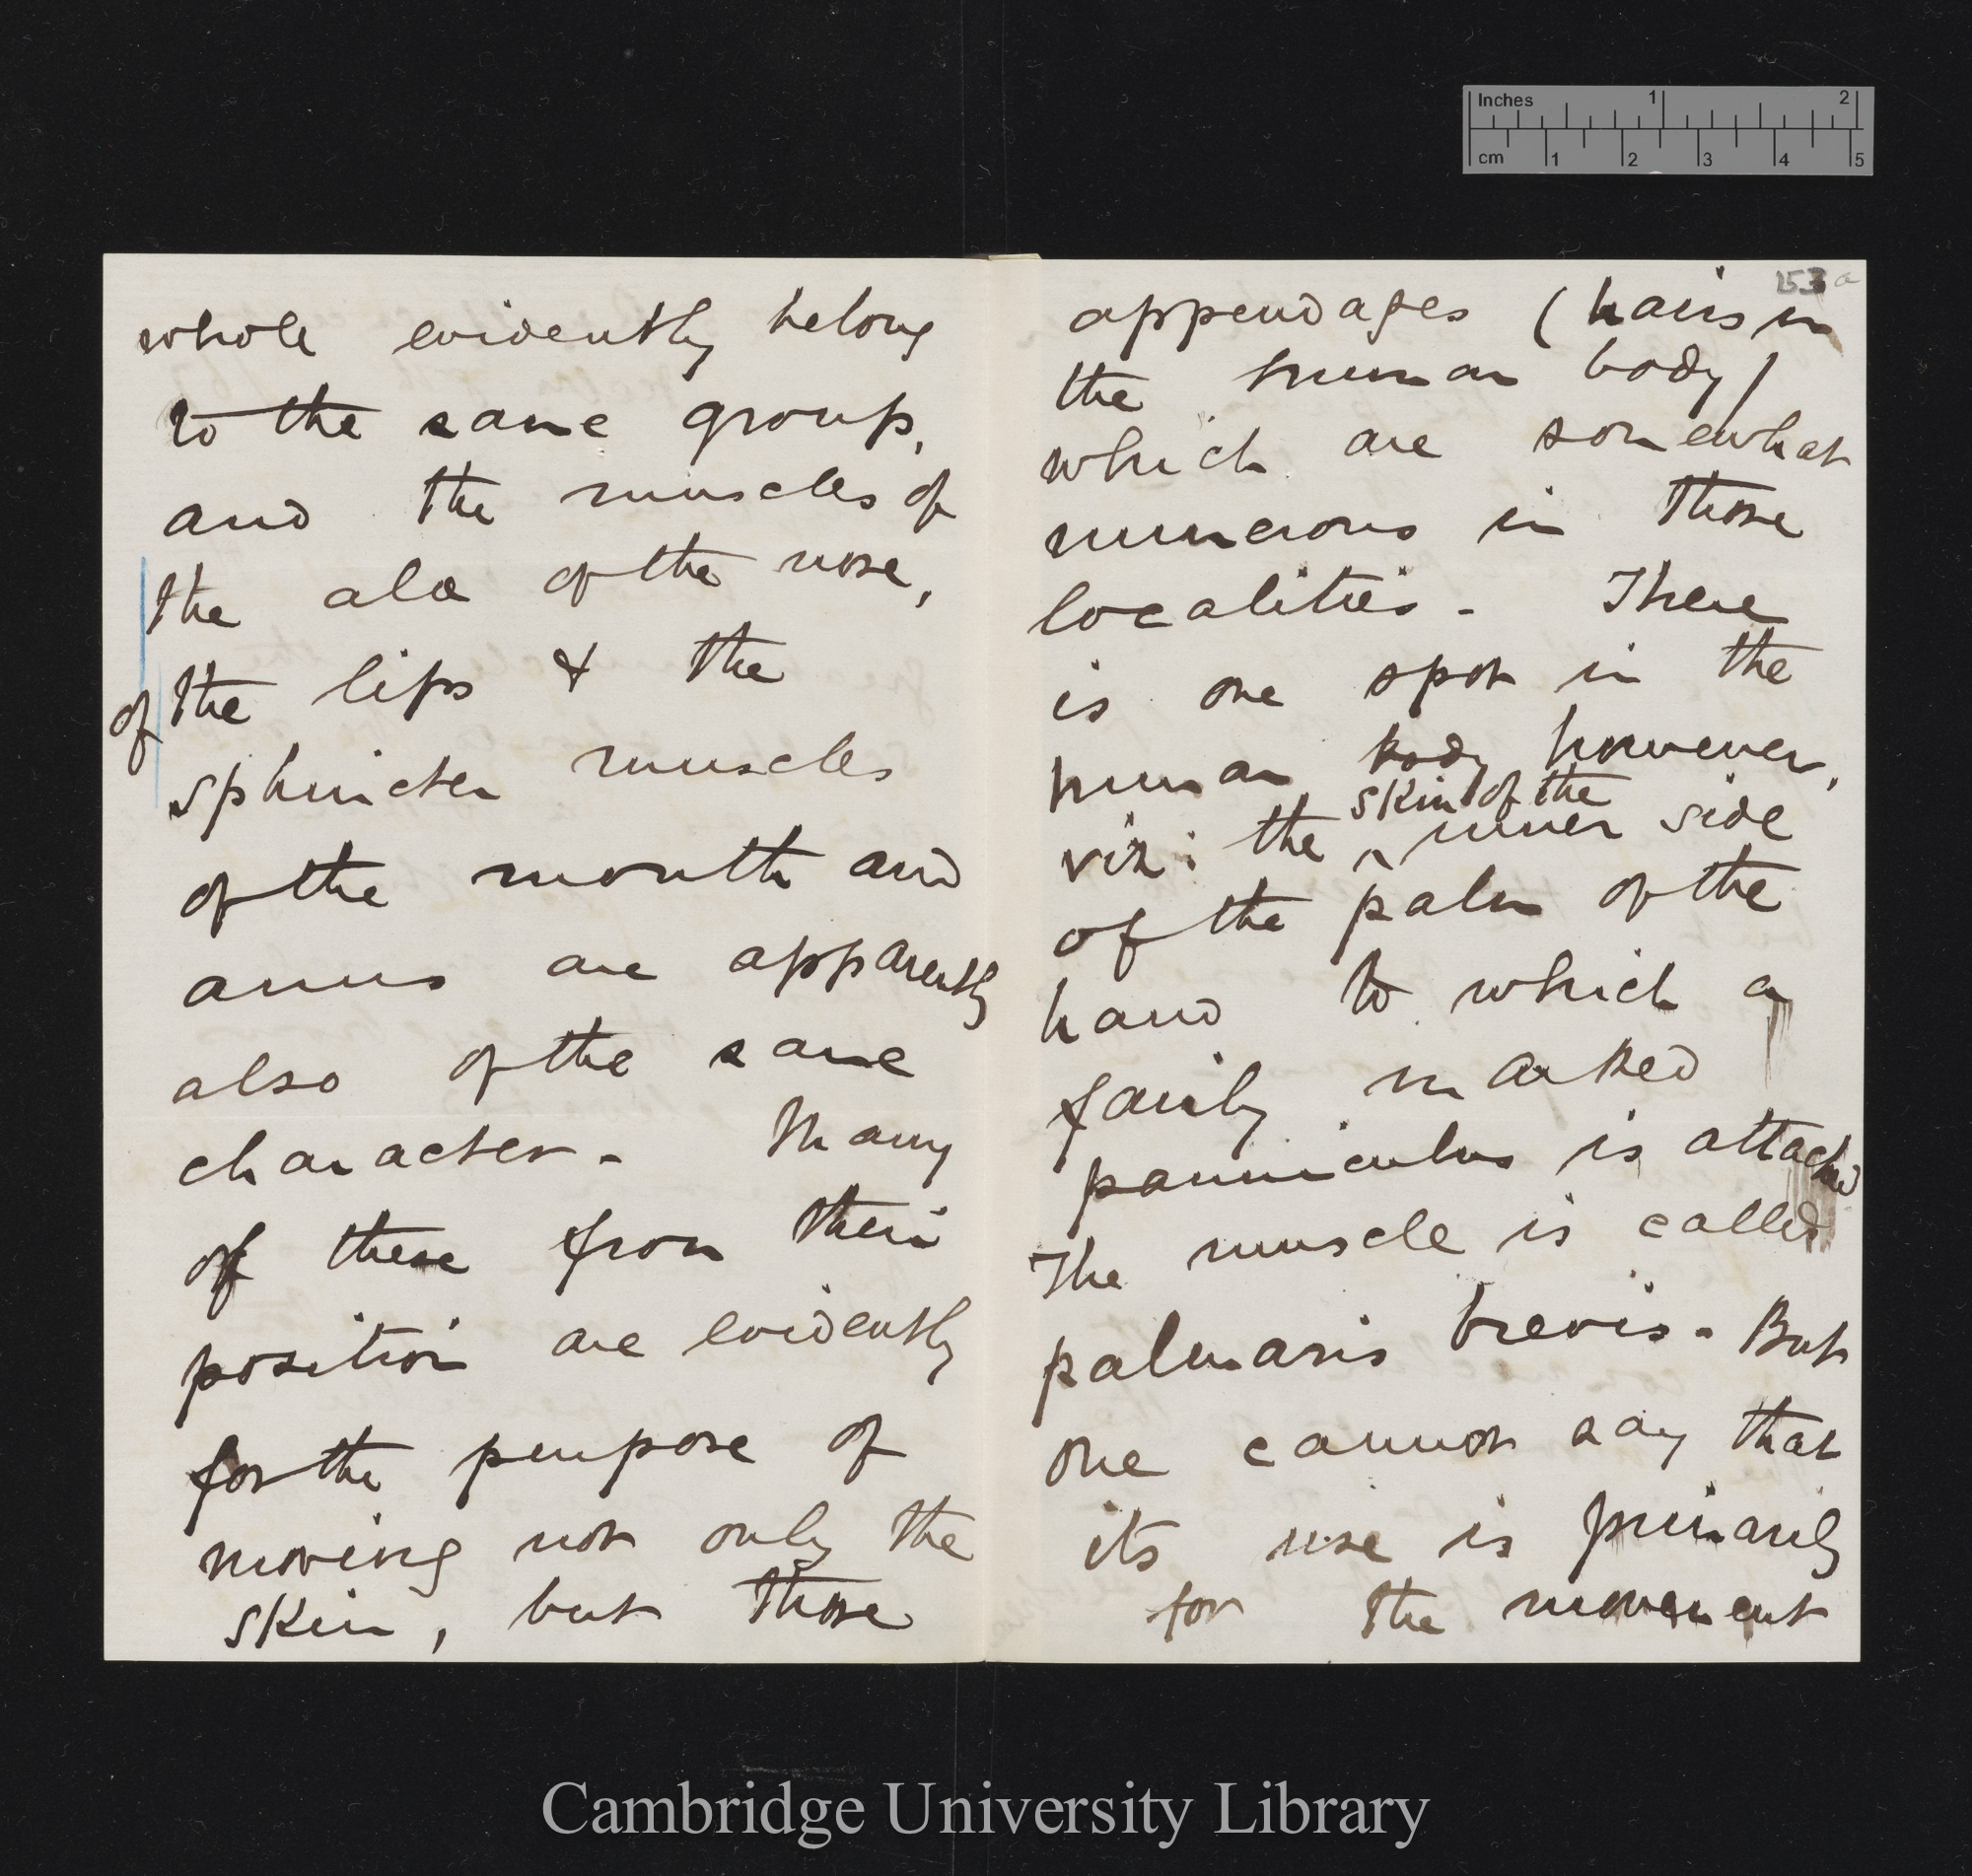 whole evidently belong
to the same group,
and the muscles of
the alæ of the nose,
of the lips & the
sphincter muscles
of the mouth and
anus are apparently
also of the same
character - Many
of these from their
position are evidently
for the purpose of
moving not only the
skin, but those
153a
appendages (hairs in
the human body)
which are somewhat
numerous in those
localities - There
is one spot in the
human body however,
skin of the
viz: the ^ inner side
of the palm of the
hand to which a
fairly marked
panniculus is attached
The muscle is called
palmaris brevis - But
one cannot say that
its use is primarily
for the movement
Inches 1 2
cm 1 2 3 4 5
Cambridge University Library